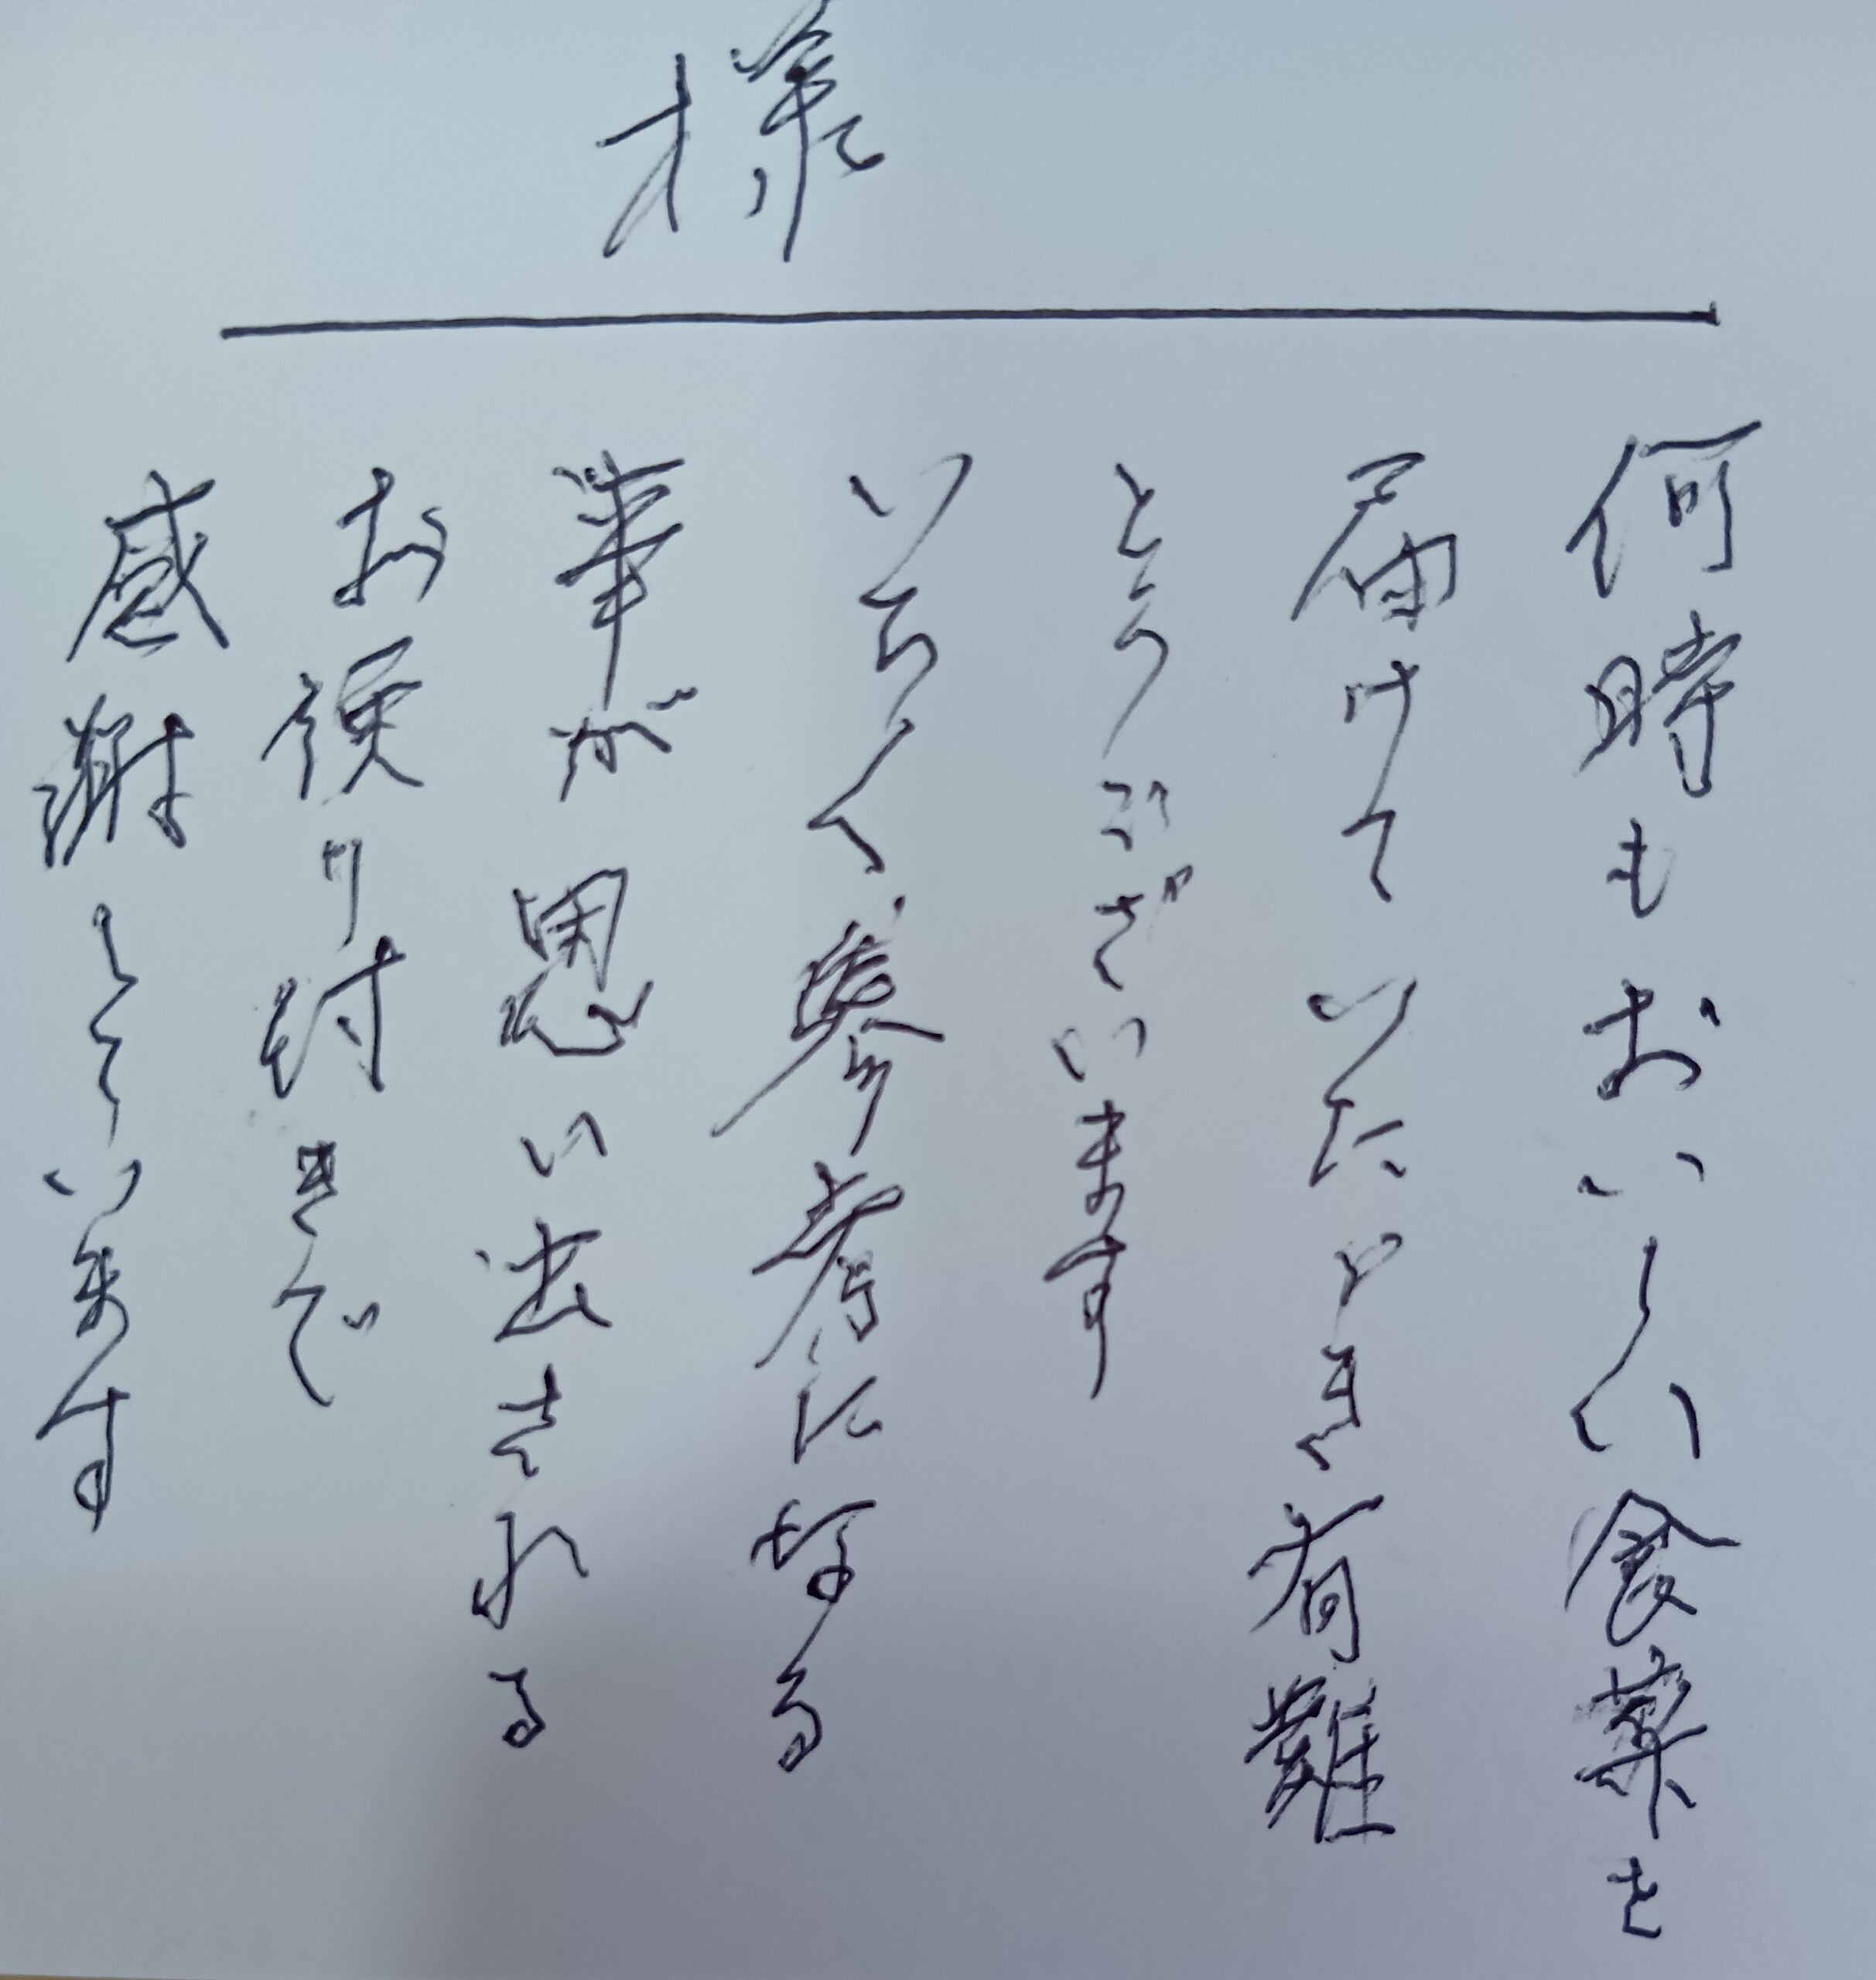 様
何時もおいしい食薬を
届けていたゞき有難
とうございます
いろ〱参考になる
事が思い出される
お便り付きで
感謝しています